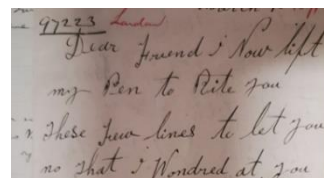 97223 London
Dear Frend i Now lift
my Pen to Rite you
These few lines to let you
no That i Wondred at you